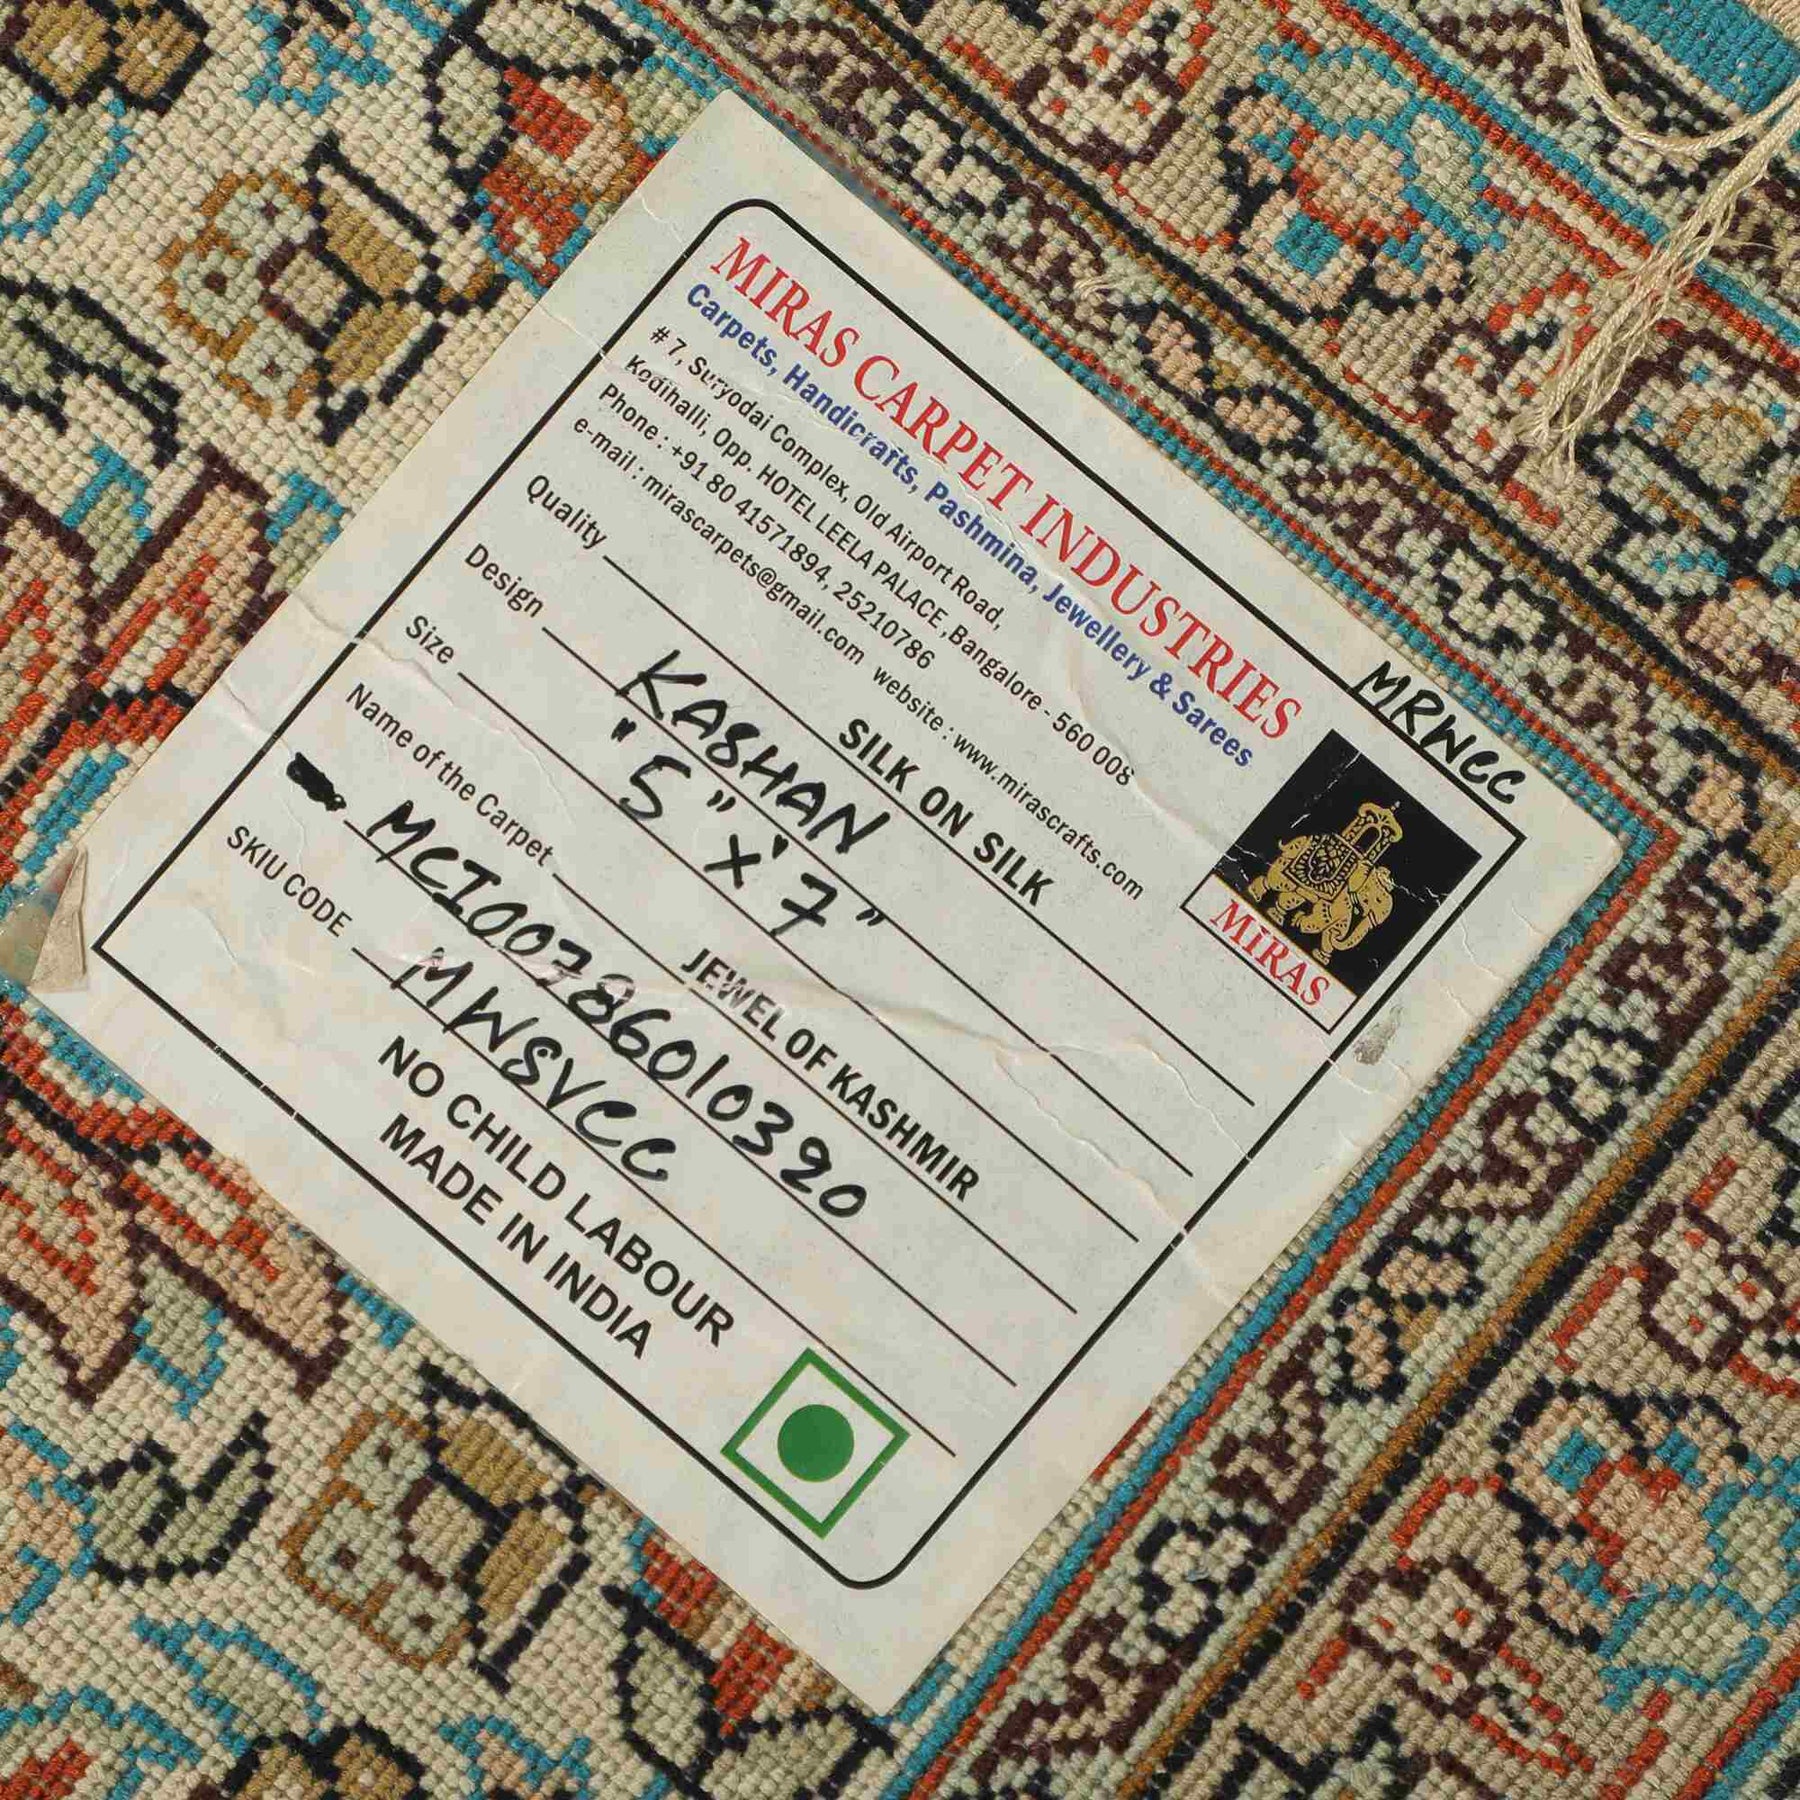 MRWCC
MIRAS CARPET INDUSTRIES
Carpets, Handicrafts, Pashmina, Jewellery & Sarees
# 7, Suryodai Complex, Old Airport Road,
Kodihalli, Opp. HOTEL LEELA PALACE ,Bangalore - 560 008
Phone : +91 80 41571894, 25210786
e-mail : mirascarpets@gmail.com website : www.mirascrafts.com
MiRAS
Quality SILK ON SILK
Design KASHAN
Size "5" x' 7"
Name of the Carpet JEWEL OF KASHMIR
MCI00786010320
SKIU CODE MWSVCC
NO CHILD LABOUR
MADE IN INDIA